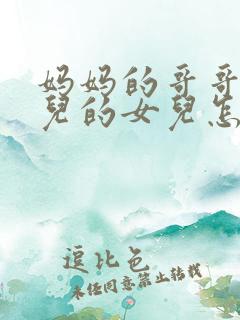 妈妈的哥哥
兒的女兒怎
逗比色
未经同意禁止转载